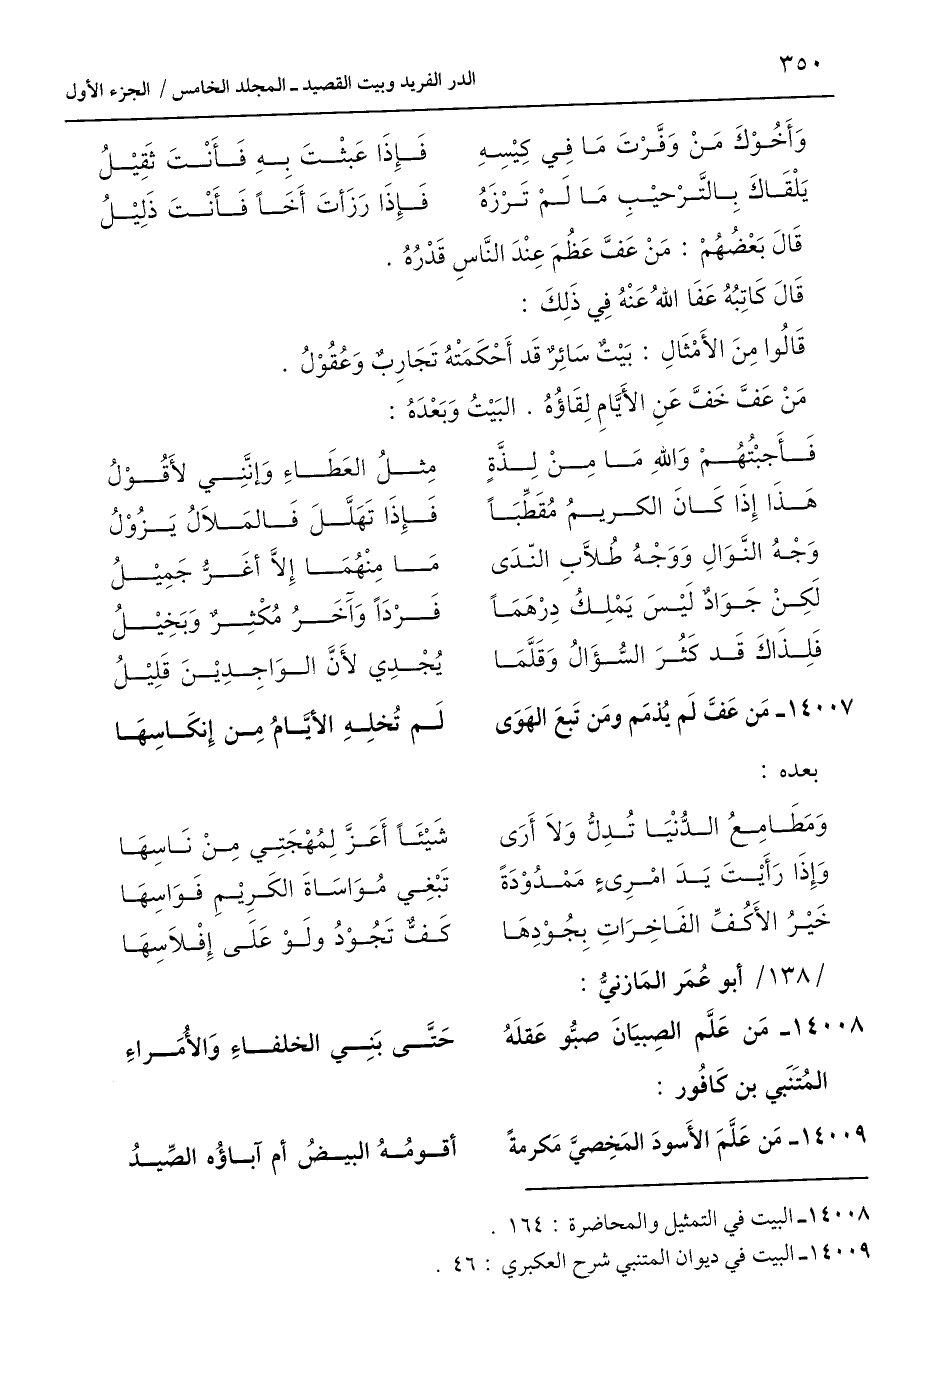 ٣٥٠
الدر الفريد وبيت القصيد ـ المجلد الخامس / الجزء الأول
وَأَخُوْكَ مَنْ وَفَّرْتَ مَا فِي كِيْسِهِ فَإِذَا عَبَثْتَ بِهِ فَأَنْتَ ثَقِيْلُ
يَلْقَاكَ بِالتَّرْحِيْبِ مَا لَمْ تَرْزَهُ فَإِذَا رَزَأتَ أَخَاً فَأَنْتَ ذَلِيْلُ
قَالَ بَعْضُهُمْ : مَنْ عَفَّ عَظُمَ عِنْدَ النَّاسِ قَدْرُهُ .
قَالَ كَاتِبُهُ عَفَا اللهُ عَنْهُ فِي ذَلِكَ :
قَالُوا مِنَ الأَمْثَالِ : بَيْتٌ سَائِرٌ قَد أَحْكَمَتْهُ تَجَارِبٌ وَعُقُوْلُ .
مَنْ عَفَّ خَفَّ عَنِ الأَيَّامِ لِقَاؤُهُ . البَيْتُ وَبَعْدَهُ :
فَأَجَبْتُهُمْ وَاللهِ مَا مِنْ لِذَّةٍ مِثْلُ العَطَاءِ وَإِنَّنِي لأَقُوْلُ
هَذَا إِذَا كَانَ الكَرِيمُ مُقَطِّبَاً فَإِذَا تَهَلَّلَ فَالمَلاَلُ يَزُوْلُ
وَجْهُ النَّوَالِ وَوَجْهُ طُلاَّبِ النَّدَى مَا مِنْهُمَا إِلاَّ أَغَرُّ جَمِيْلُ
لَكِنْ جَوَادٌ لَيْسَ يَمْلِكُ دِرْهَمَاً فَرْدَاً وَآخَرُ مُكْثِرٌ وَبَخِيْلُ
فَلِذَاكَ قَد كَثُرَ السُّؤَالُ وَقَلَّمَا يُجْدِي لأَنَّ الوَاجِدِيْنَ قَلِيْلُ
١٤٠٠٧ـ مَن عَفَّ لَم يُذمَم ومَن تَبعَ الهَوَى لَم تُخلِهِ الأيَّامُ مِن إِنكَاسِهَا
بعده :
وَمَطَامِعُ الدُّنْيَا تُدِلُّ وَلاَ أَرَى شَيْئَاً أَعَزَّ لِمُهْجَتِي مِنْ نَاسِهَا
وَإِذَا رَأَيْتَ يَدَ امْرِىءٍ مَمْدُوْدَةً تَبْغِي مُوَاسَاةَ الكَرِيْمِ فَوَاسِهَا
خَيْرُ الأَكُفِّ الفَاخِرَاتِ بِجُوْدِهَا كَفٌّ تَجُوْدُ ولَوْ عَلَى إِفْلاَسِهَا
/١٣٨/ أبو عُمَر المَازنيُّ :
١٤٠٠٨ـ مَن عَلَّم الصِبيَانَ صبُّو عَقلَهُ حَتَّى بَنِي الخلفاءِ وَالأُمَراءِ
المُتَنَبي بن كَافُور :
١٤٠٠٩ـ مَن عَلَّمَ الأَسودَ المَخصِيَّ مَكرمةً أقومُهُ البيضُ أم آباؤُه الصِّيدُ
١٤٠٠٨ـ البيت في التمثيل والمحاضرة : ١٦٤ .
١٤٠٠٩ـ البيت في ديوان المتنبي شرح العكبري : ٤٦ .